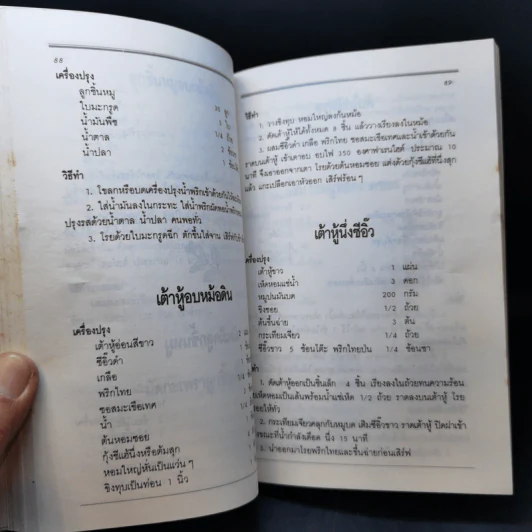 88
เครื่องปรุง
ลูกชิ้นหมู
ใบมะกรูด
น้ำมันพืช
น้ำตาล
น้ำปลา
วิธีทำ
1. โขลกหรือบดเครื่องปรุงน้ำพริกเข้าด้วยกัน
2. ใส่น้ำมันลงในกระทะ ใส่น้ำพริกผัดพอ
ปรุงรสด้วยน้ำตาล น้ำปลา คนพอทั่ว
3. โรยด้วยใบมะกรูดฉีก ตักขึ้นใส่จาน
เต้าหู้อบหม้อดิน
เครื่องปรุง
เต้าหู้อ่อนสีขาว
ซีอิ๊วดำ
เกลือ
พริกไทย
ซอสมะเขือเทศ
น้ำ
ต้นหอมซอย
กุ้งชีแฮ้นึ่งหรือต้มสุก
หอมใหญ่หั่นเป็นแว่น ๆ
ขิงทุบเป็นท่อน 1 นิ้ว
89
วิธีทำ
1. วางขิงทุบ หอมใหญ่ลงก้นหม้อ
2. ตัดเต้าหู้ให้ได้ทั้งหมด 8 ชิ้น แล้ววางเรียงลงในหม้อ
3. ผสมซีอิ๊วดำ เกลือ พริกไทย ซอสมะเขือเทศและน้ำเข้าด้วยกัน
ราดบนเต้าหู้ เข้าเตาอบ อบไฟ 350 องศาฟาเรนไฮต์ ประมาณ 10
นาที จึงเอาออกจากเตา โรยด้วยต้นหอมซอย แต่งด้วยกุ้งชีแฮ้ที่นึ่งสุก
แล้ว แกะเปลือกเอาหัวออก เสิร์ฟร้อน ๆ
เต้าหู้นึ่งซีอิ๊ว
เครื่องปรุง
เต้าหู้ขาว 1 แผ่น
เห็ดหอมแช่น้ำ 3 ดอก
หมูปนมันบด 200 กรัม
ขิงซอย 1/2 ถ้วย
ต้นขึ้นฉ่าย 3 ต้น
กระเทียมเจียว 1/4 ถ้วย
ซีอิ๊วขาว 5 ช้อนโต๊ะ พริกไทยป่น 1/4 ช้อนชา
1. ตัดเต้าหู้ออกเป็นชิ้นเล็ก 4 ชิ้น เรียงลงในถ้วยทนความร้อน
เห็ดหอมเป็นเส้นพร้อมน้ำแช่เห็ด 1/2 ถ้วย ราดลงบนเต้าหู้ โรย
2. กระเทียมเจียวคลุกกับหมูบด เติมซีอิ๊วขาว ราดเต้าหู้ ปิดฝาเข้า
ขณะที่น้ำกำลังเดือด นึ่ง 15 นาที
3. นำออกมาโรยพริกไทยและขึ้นฉ่ายก่อนเสิร์ฟ